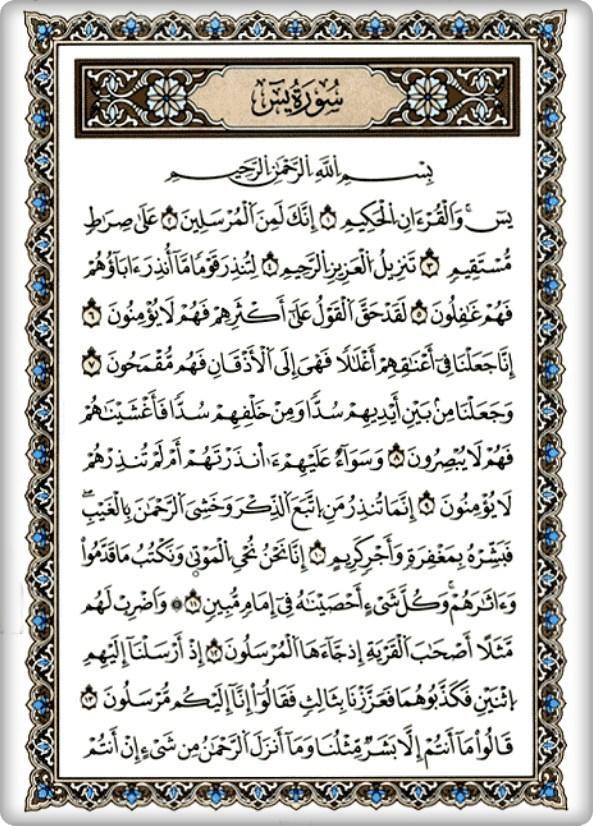 سُورَةُ يسٓ
بِسْمِ اللَّهِ الرَّحْمَٰنِ الرَّحِيمِ
يسٓۚ وَالْقُرْءَانِ الْحَكِيمِ ١ إِنَّكَ لَمِنَ الْمُرْسَلِينَ ٢ عَلَىٰ صِرَاطٍ
مُّسْتَقِيمٍ ٣ تَنزِيلُ الْعَزِيزِ الرَّحِيمِ ٤ لِتُنذِرَ قَوْمًا مَّا أُنذِرَ ءَابَاؤُهُمْ
فَهُمْ غَٰفِلُونَ ٥ لَقَدْ حَقَّ الْقَوْلُ عَلَىٰٓ أَكْثَرِهِمْ فَهُمْ لَا يُؤْمِنُونَ ٦
إِنَّا جَعَلْنَا فِىٓ أَعْنَٰقِهِمْ أَغْلَٰلًا فَهْىَ إِلَى الْأَذْقَانِ فَهُم مُّقْمَحُونَ ٧
وَجَعَلْنَا مِنۢ بَيْنِ أَيْدِيهِمْ سُدًّا وَمِنْ خَلْفِهِمْ سُدًّا فَأَغْشَيْنَٰهُمْ
فَهُمْ لَا يُبْصِرُونَ ٨ وَسَوَآءٌ عَلَيْهِمْ ءَا۬نذَرْتَهُمْ أَمْ لَمْ تُنذِرْهُمْ
لَا يُؤْمِنُونَ ٩ إِنَّمَا تُنذِرُ مَنِ اتَّبَعَ الذِّكْرَ وَخَشِىَ الرَّحْمَٰنَ بِالْغَيْبِۖ
فَبَشِّرْهُ بِمَغْفِرَةٍ وَأَجْرٍ كَرِيمٍ ١٠ إِنَّا نَحْنُ نُحْىِ الْمَوْتَىٰ وَنَكْتُبُ مَا قَدَّمُوا
وَءَاثَٰرَهُمْۚ وَكُلَّ شَىْءٍ أَحْصَيْنَٰهُ فِىٓ إِمَامٍ مُّبِينٍ ١١ ۞ وَاضْرِبْ لَهُم
مَّثَلًا أَصْحَٰبَ الْقَرْيَةِ إِذْ جَآءَهَا الْمُرْسَلُونَ ١٢ إِذْ أَرْسَلْنَآ إِلَيْهِمُ
اثْنَيْنِ فَكَذَّبُوهُمَا فَعَزَّزْنَا بِثَالِثٍ فَقَالُوٓا إِنَّآ إِلَيْكُم مُّرْسَلُونَ ١٣
قَالُوا مَآ أَنتُمْ إِلَّا بَشَرٌ مِّثْلُنَا وَمَآ أَنزَلَ الرَّحْمَٰنُ مِن شَىْءٍ إِنْ أَنتُمْ